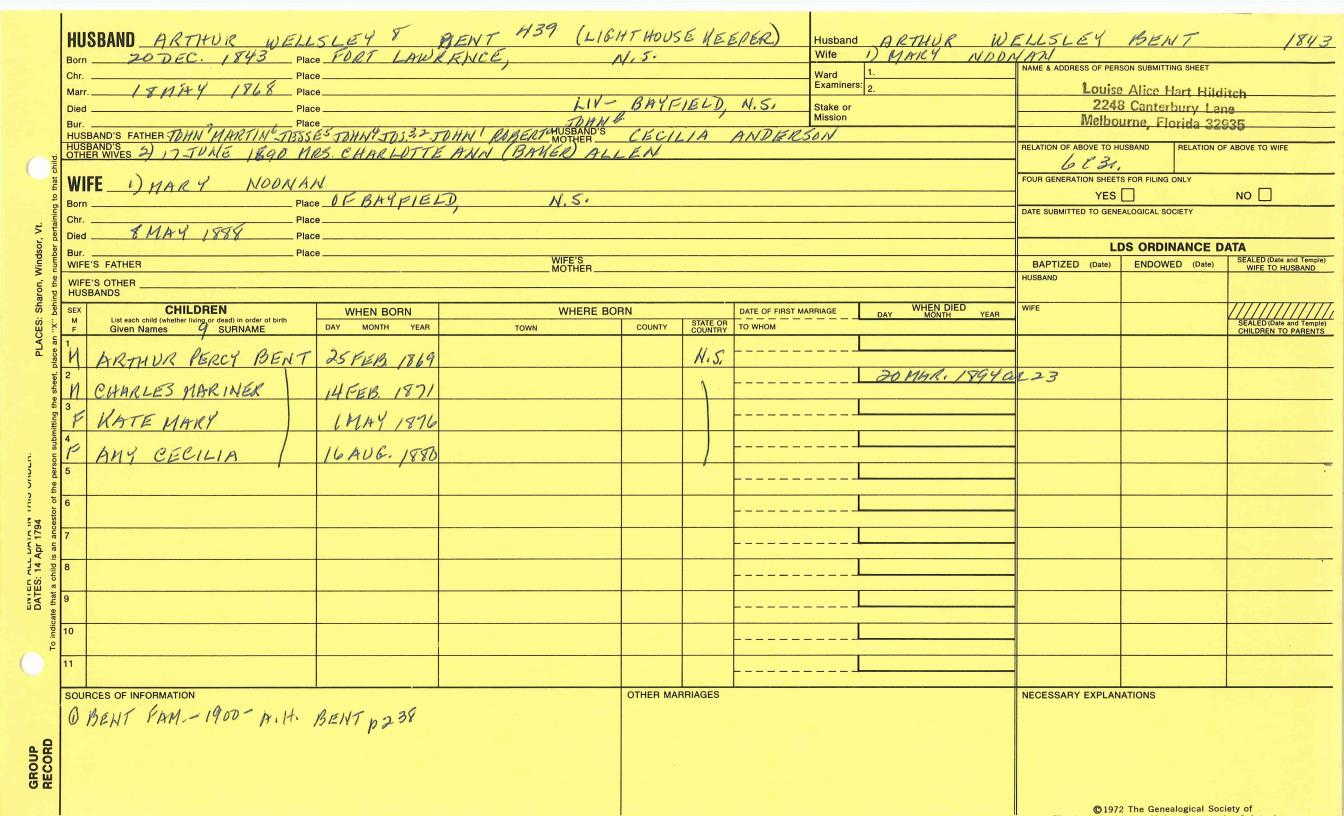 HUSBAND ARTHUR WELLSLEY 8 BENT #39 (LIGHTHOUSE KEEPER)
Born 20 DEC. 1843 Place FORT LAWRENCE, N.S.
Chr. Place
Marr. 18 MAY 1868 Place
Died Place LIV- BAYFIELD, N.S.
Bur. Place JOHN
HUSBAND'S FATHER JOHN MARTIN JESSE JOHN JOS JOHN ROBERT HUSBAND'S MOTHER CECILIA ANDERSON
HUSBAND'S OTHER WIVES 2) 17 JUNE 1890 MRS. CHARLOTTE ANN (BAKER) ALLEN
Husband ARTHUR WELLSLEY BENT 1843
Wife 1) MARY NOONAN
Ward Examiners: 1.
2.
Stake or Mission
NAME & ADDRESS OF PERSON SUBMITTING SHEET
Louise Alice Hart Hilditch
2248 Canterbury Lane
Melbourne, Florida 32935
RELATION OF ABOVE TO HUSBAND RELATION OF ABOVE TO WIFE
FOUR GENERATION SHEETS FOR FILING ONLY
YES NO
DATE SUBMITTED TO GENEALOGICAL SOCIETY
WIFE 1) MARY NOONAN
Born Place OF BAYFIELD, N.S.
Chr. Place
Died 8 MAY 1888 Place
Bur. Place
WIFE'S FATHER WIFE'S MOTHER
WIFE'S OTHER HUSBANDS
LDS ORDINANCE DATA
BAPTIZED (Date) ENDOWED (Date) SEALED (Date and Temple) WIFE TO HUSBAND
HUSBAND
WIFE
SEALED (Date and Temple) CHILDREN TO PARENTS
SEX M F
CHILDREN
List each child (whether living or dead) in order of birth
Given Names 9 SURNAME
WHEN BORN
DAY MONTH YEAR
WHERE BORN
TOWN COUNTY STATE OR COUNTRY
DATE OF FIRST MARRIAGE
TO WHOM
WHEN DIED
DAY MONTH YEAR
1 M ARTHUR PERCY BENT 25 FEB 1869 N.S.
2 M CHARLES MARINER 14 FEB. 1871 20 MAR. 1894 ae 23
3 F KATE MARY 1 MAY 1876
4 F AMY CECILIA 16 AUG. 1880
5
6
7
8
9
10
11
SOURCES OF INFORMATION
① BENT FAM. - 1900 - A.H. BENT p238
OTHER MARRIAGES
NECESSARY EXPLANATIONS
©1972 The Genealogical Society of
PLACES: Sharon, Windsor, Vt.
DATES: 14 Apr 1794
To indicate that a child is an ancestor of the person submitting the sheet, place an "X" behind the number pertaining to that child.
GROUP RECORD